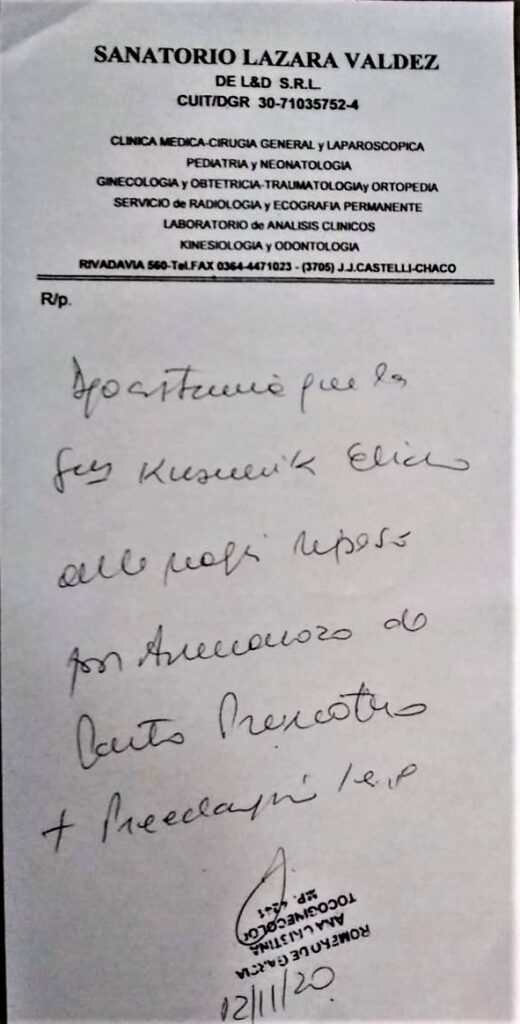 SANATORIO LAZARA VALDEZ
DE L&D S.R.L.
CUIT/DGR 30-71035752-4
CLINICA MEDICA-CIRUGIA GENERAL y LAPAROSCOPICA
PEDIATRIA y NEONATOLOGIA
GINECOLOGIA y OBTETRICIA-TRAUMATOLOGIAy ORTOPEDIA
SERVICIO de RADIOLOGIA y ECOGRAFIA PERMANENTE
LABORATORIO de ANALISIS CLINICOS
KINESIOLOGIA y ODONTOLOGIA
RIVADAVIA 560-Tel.FAX 0364-4471023 - (3705) J.J.CASTELLI-CHACO
R/p.
que la
reposo
por Amenaza de
Parto Prematuro
+
ROMERO DE GARCIA
ANA CRISTINA
MP. 4241
12/11/20